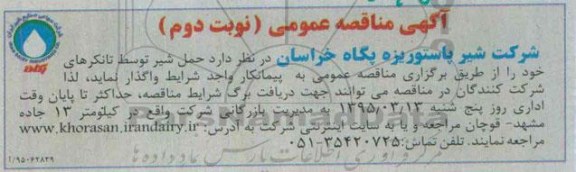 آگهی مناقصه عمومی (نوبت دوم)
شرکت شیر پاستوریزه پگاه خراسان در نظر دارد حمل شیر توسط تانکرهای
خود را از طریق برگزاری مناقصه عمومی به پیمانکار واجد شرایط واگذار نماید، لذا
شرکت کنندگان در مناقصه می توانند جهت دریافت برگ شرایط مناقصه، حداکثر تا پایان وقت
اداری روز پنج شنبه ۱۳۹۵/۰۳/۱۳ به مدیریت بازرگانی شرکت واقع در کیلومتر ۱۳ جاده
مشهد- قوچان مراجعه و یا به سایت اینترنتی شرکت به آدرس: www.khorasan.irandairy.ir
مراجعه نمایند. تلفن تماس: ۳۵۴۲۰۷۲۵-۰۵۱
پگاه
ParsNamadData
۹۵۰۶۲۸۲۹/آ